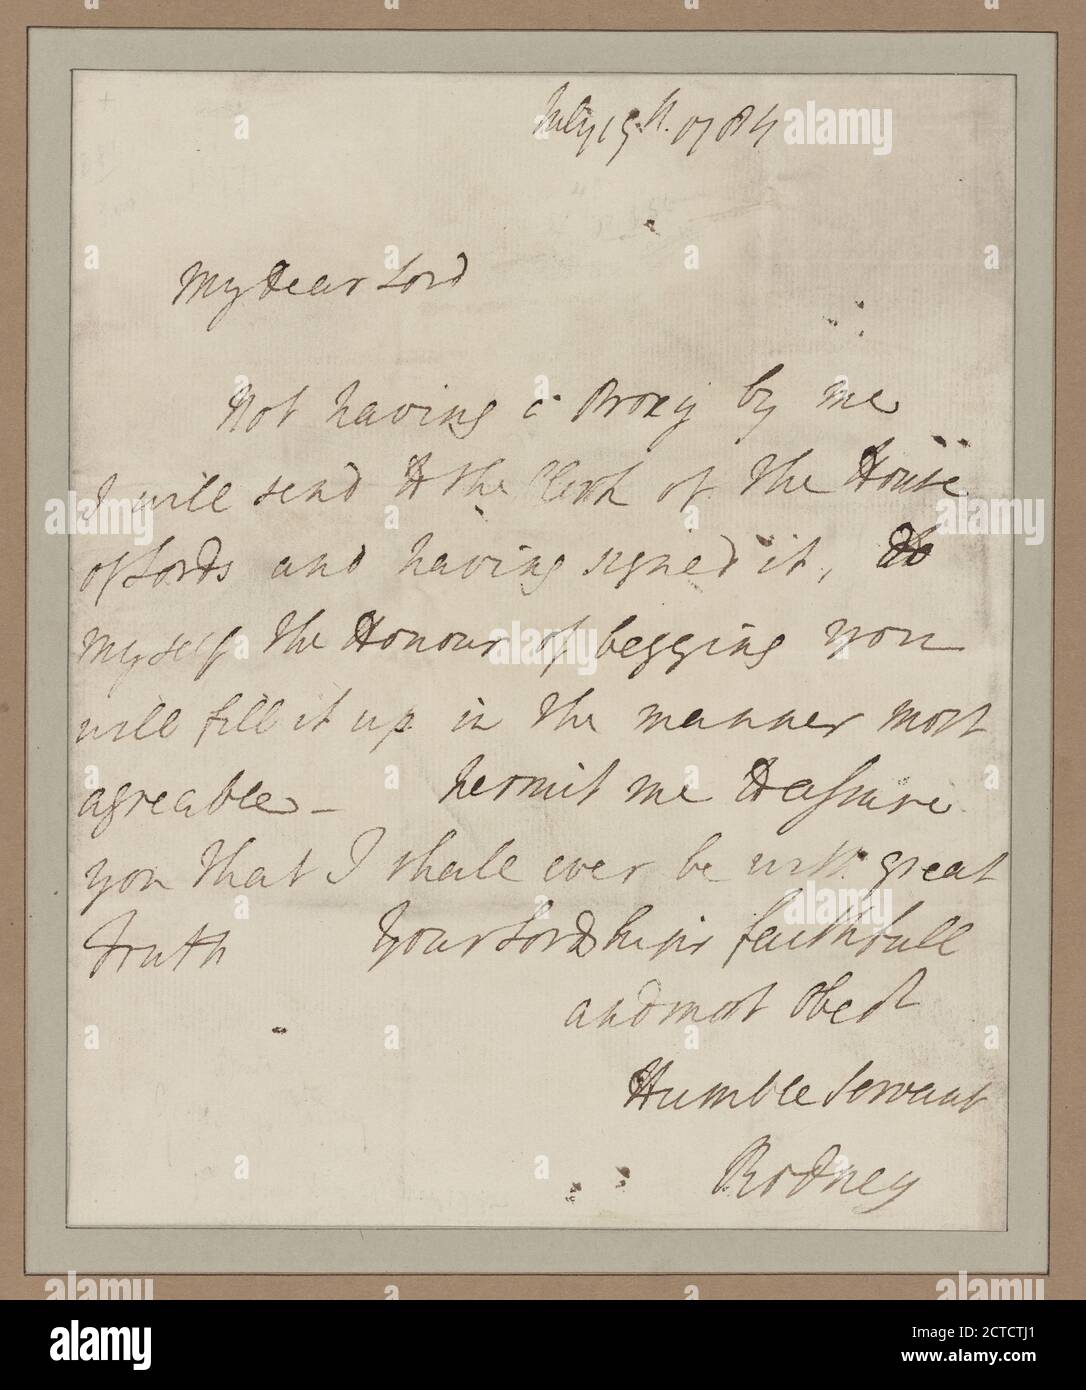 July 15th. 1784
My Dear Lord
Not having a Proxy by me
I will send to the Clerk of the House
of Lords and having signed it, do
myself the Honour of begging you
will fill it up in the manner most
agreable - permit me to assure
you that I shall ever be with great
Truth Your Lordships faithfull
and most Obedt
Humble Servant
Rodney
alamy
Image ID: 2CTCTJ1
www.alamy.com